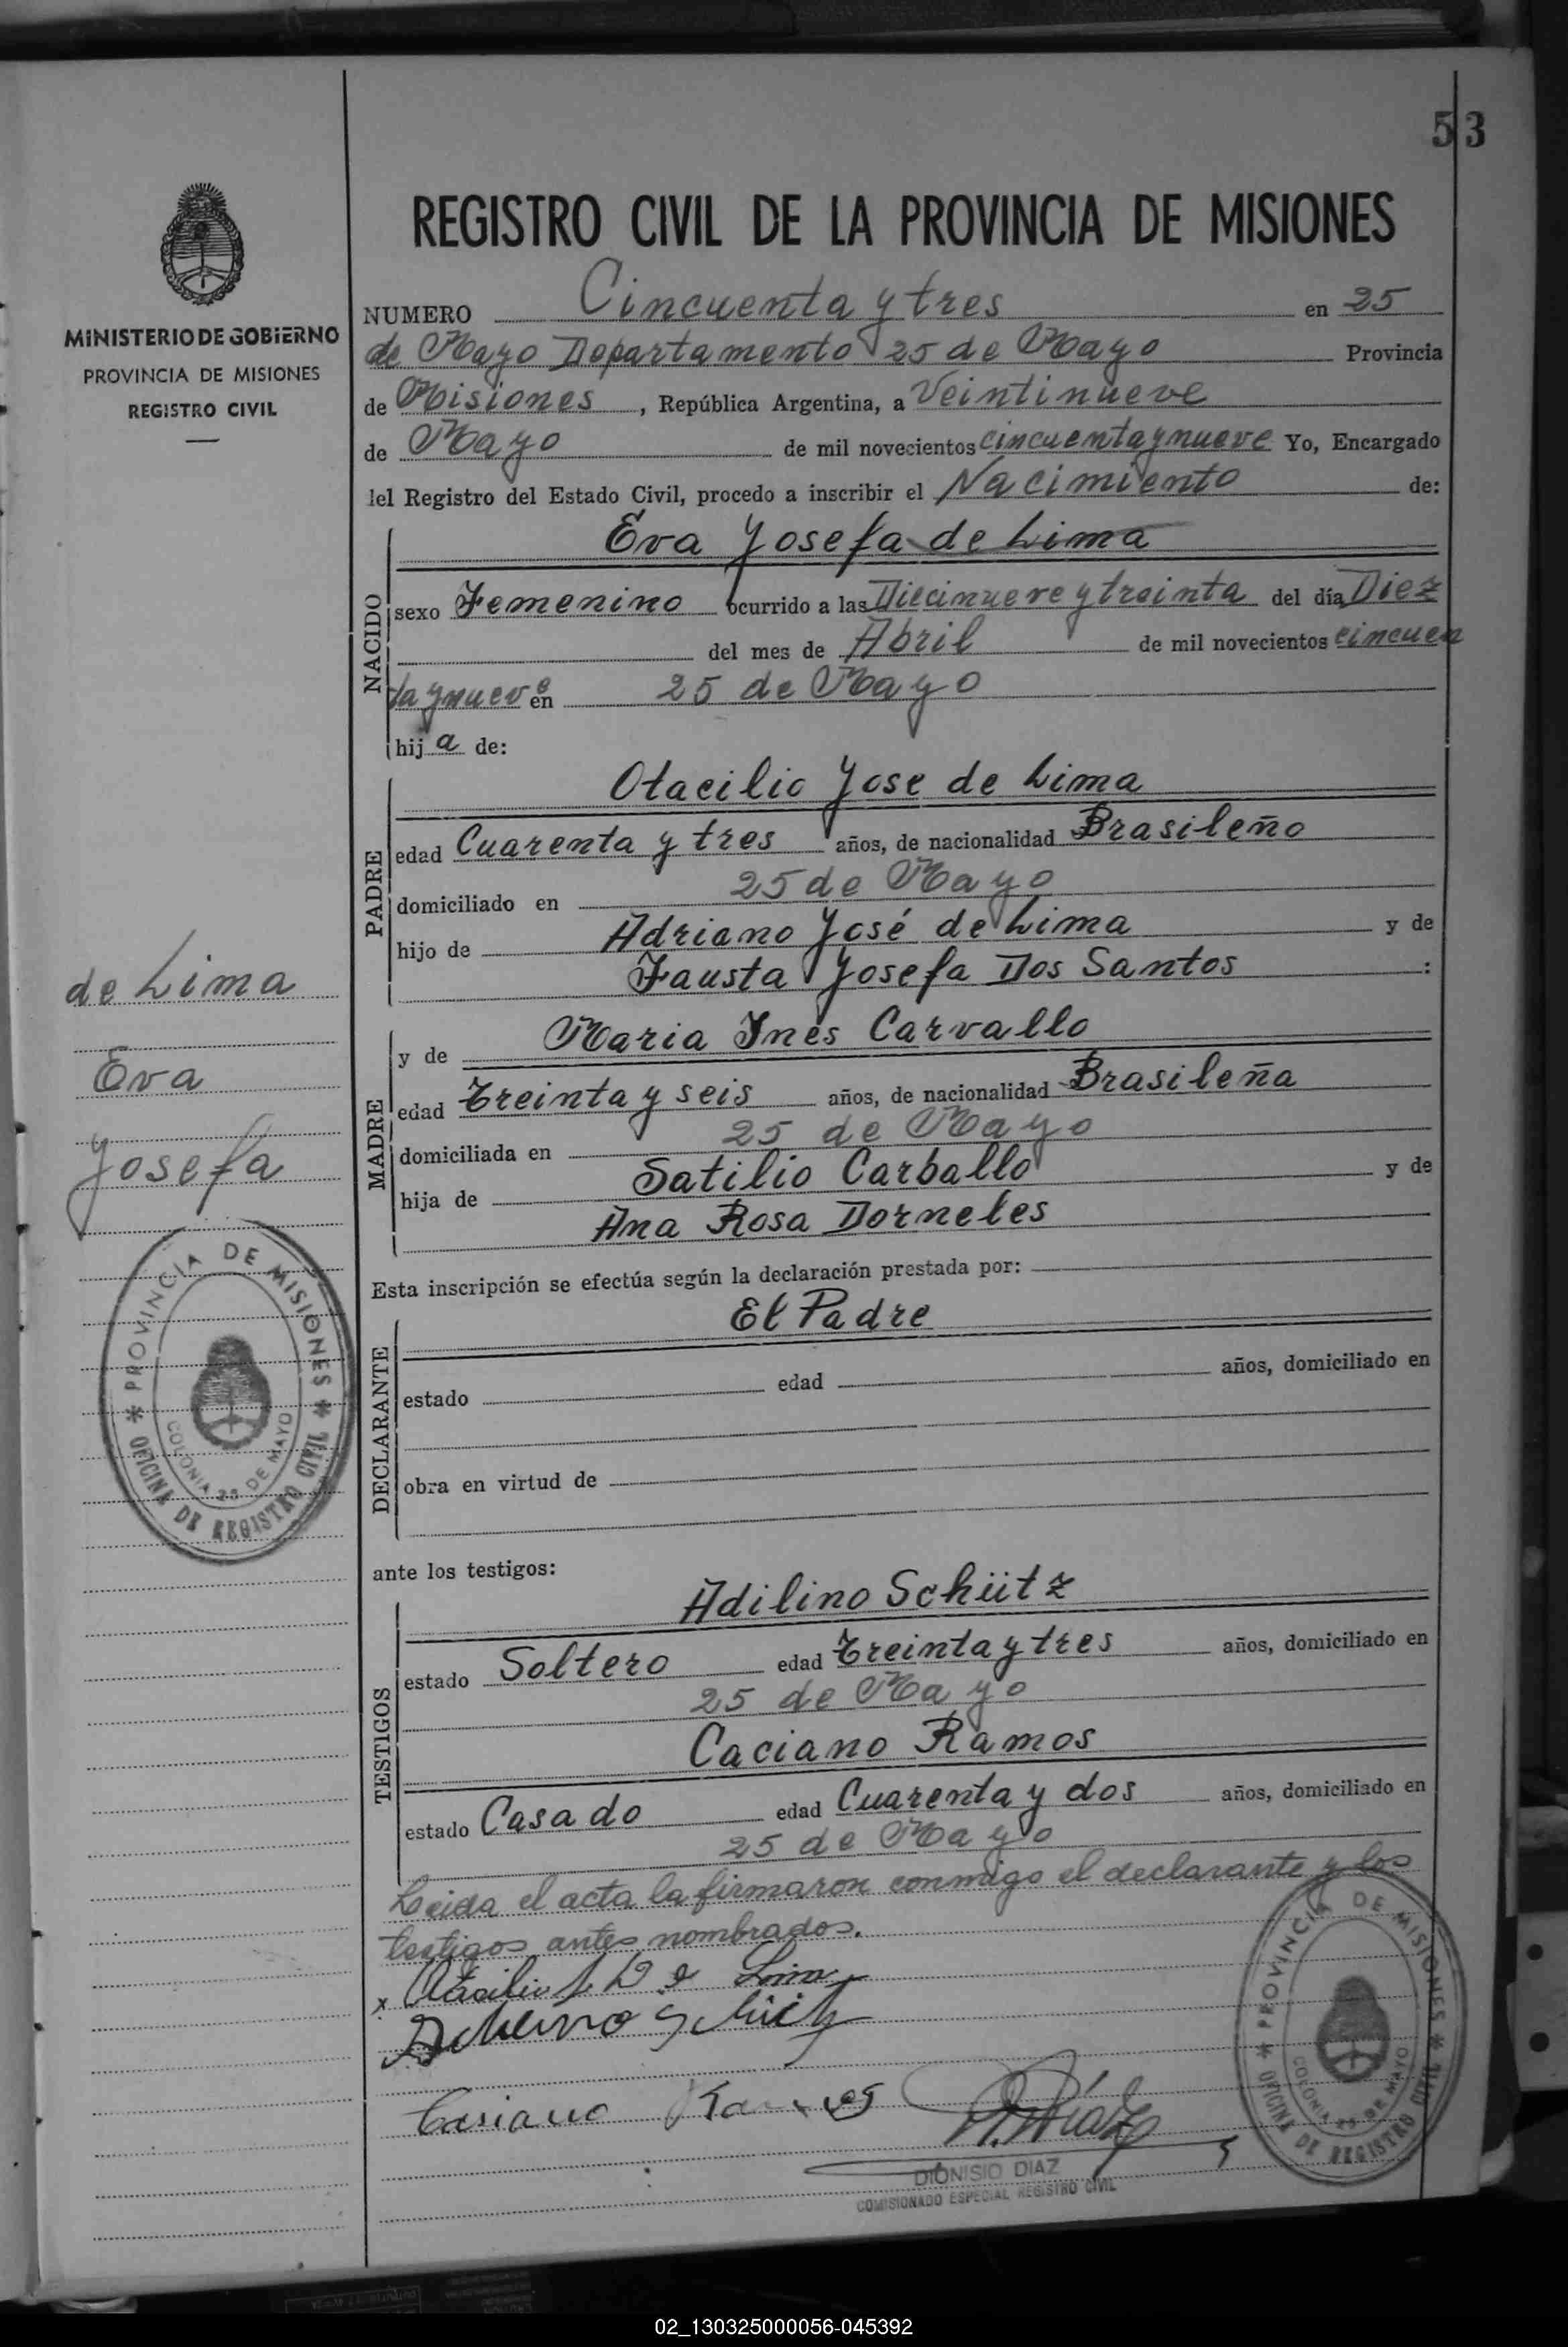 53
MINISTERIO DE GOBIERNO
PROVINCIA DE MISIONES
REGISTRO CIVIL
REGISTRO CIVIL DE LA PROVINCIA DE MISIONES
NUMERO Cincuenta y tres en 25
de Mayo Departamento 25 de Mayo Provincia
de Misiones, República Argentina, a Veintinueve
de Mayo de mil novecientos cincuenta y nueve Yo, Encargado
del Registro del Estado Civil, procedo a inscribir el Nacimiento de:
NACIDO
Eva Josefa de Lima
sexo Femenino ocurrido a las Diecinueve y treinta del día Diez
del mes de Abril de mil novecientos cincuen
ta y nueve en 25 de Mayo
hija de:
PADRE
Otacilio Jose de Lima
edad Cuarenta y tres años, de nacionalidad Brasileño
domiciliado en 25 de Mayo
hijo de Adriano José de Lima y de
Fausta Josefa Dos Santos :
MADRE
y de Maria Inés Carvallo
edad Treinta y seis años, de nacionalidad Brasileña
domiciliada en 25 de Mayo
hija de Satilio Carballo y de
Ana Rosa Dorneles
de Lima
Eva
Josefa
PROVINCIA DE MISIONES
COLONIA 25 DE MAYO
* OFICINA DE REGISTRO CIVIL *
Esta inscripción se efectúa según la declaración prestada por:
DECLARANTE
El Padre
estado edad años, domiciliado en
obra en virtud de
ante los testigos:
TESTIGOS
Adilino Schütz
estado Soltero edad Treinta y tres años, domiciliado en
25 de Mayo
Caciano Ramos
estado Casado edad Cuarenta y dos años, domiciliado en
25 de Mayo
Leida el acta la firmaron conmigo el declarante y los
testigos antes nombrados.
x Otacilio J. De Lima
Schütz
Casiano Ramos
D. Díaz
DIONISIO DIAZ
COMISIONADO ESPECIAL REGISTRO CIVIL
PROVINCIA DE MISIONES
COLONIA 25 DE MAYO
* OFICINA DE REGISTRO CIVIL *
02_130325000056-045392